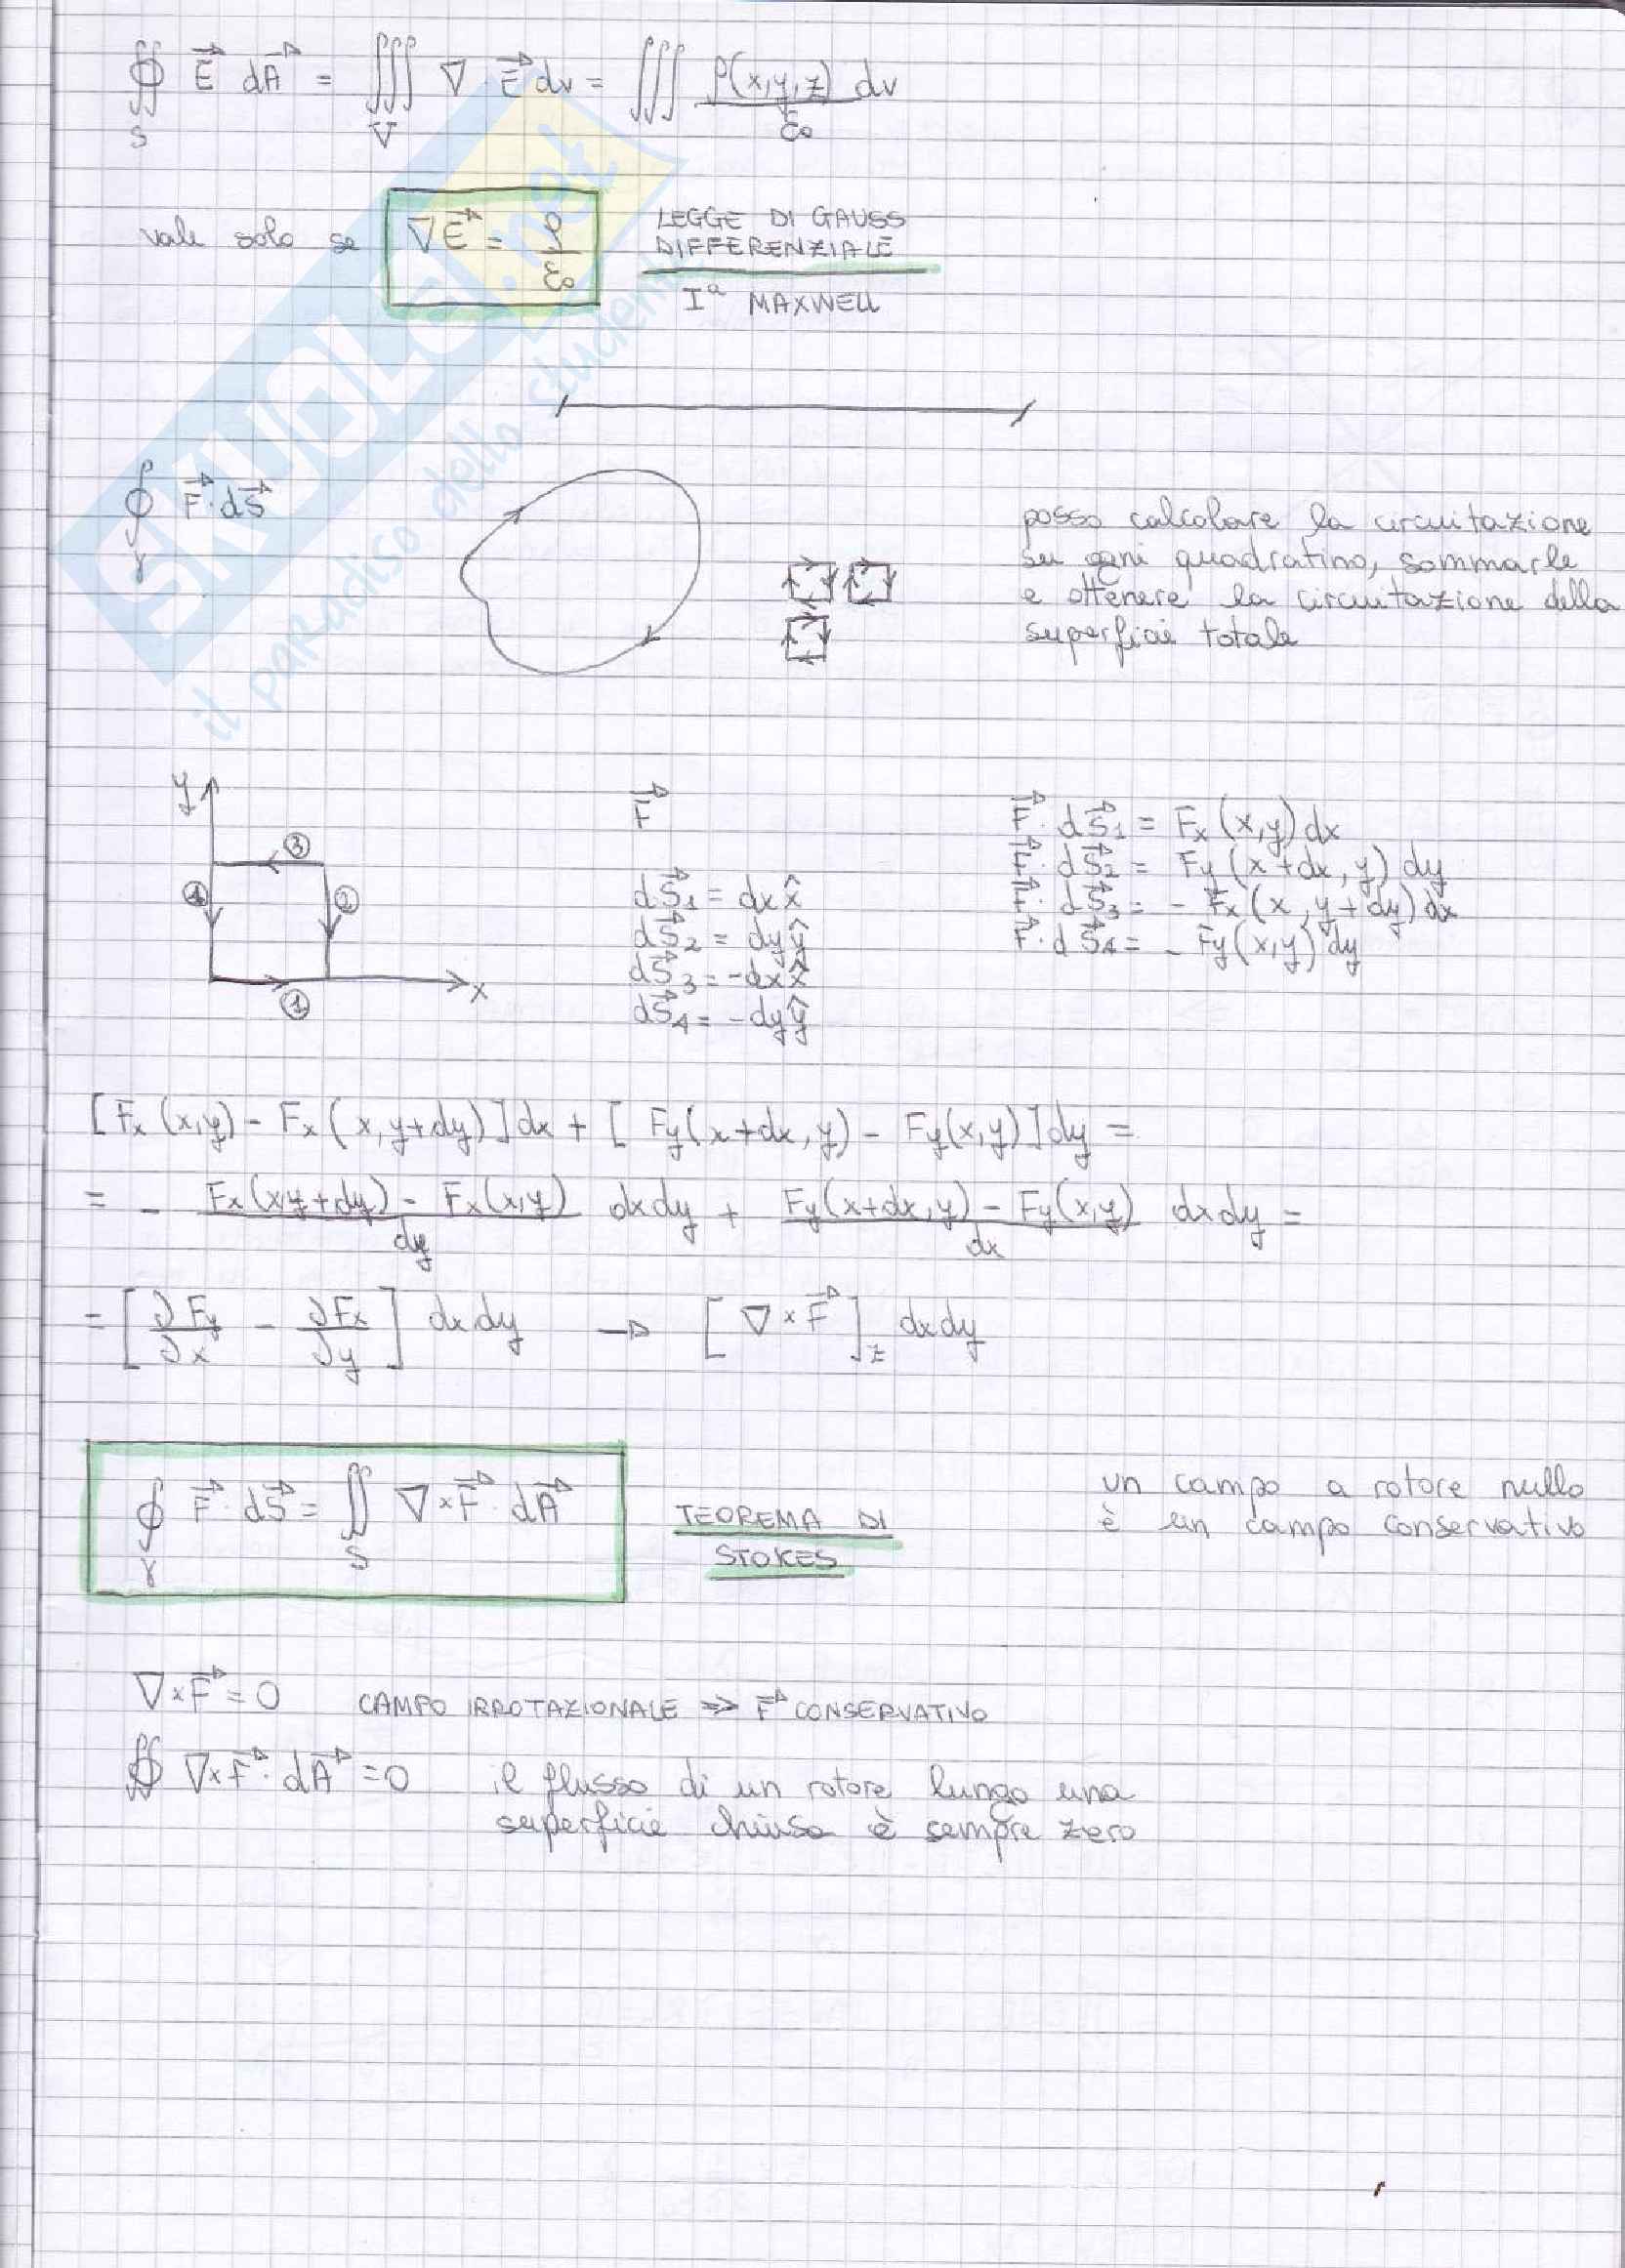 ∯_S E⃗ dA⃗ = ∭_V ∇·E⃗ dv = ∭ ρ(x,y,z)/ε₀ dv
vale solo se ∇E⃗ = ρ/ε₀ LEGGE DI GAUSS
DIFFERENZIALE
Iª MAXWELL
SKUOLA.net
il paradiso dello studente
∮_γ F⃗·dS⃗
posso calcolare la circuitazione
su ogni quadratino, sommarle
e ottenere la circuitazione della
superficie totale
y
③
④ ②
x
①
F⃗
dS⃗₁ = dx x̂
dS⃗₂ = dy ŷ
dS⃗₃ = -dx x̂
dS⃗₄ = -dy ŷ
F⃗·dS⃗₁ = Fx(x,y)dx
F⃗·dS⃗₂ = Fy(x+dx,y)dy
F⃗·dS⃗₃ = -Fx(x,y+dy)dx
F⃗·dS⃗₄ = -Fy(x,y)dy
[Fx(x,y) - Fx(x,y+dy)]dx + [Fy(x+dx,y) - Fy(x,y)]dy =
= - (Fx(x,y+dy) - Fx(x,y))/dy dxdy + (Fy(x+dx,y) - Fy(x,y))/dx dxdy =
= [∂Fy/∂x - ∂Fx/∂y] dxdy → [∇×F⃗]_z dxdy
∮_γ F⃗·dS⃗ = ∬_S ∇×F⃗·dA⃗
TEOREMA DI
STOKES
un campo a rotore nullo
è un campo conservativo
∇×F⃗ = 0 CAMPO IRROTAZIONALE => F⃗ CONSERVATIVO
∯ ∇×F⃗·dA⃗ = 0 il flusso di un rotore lungo una
superficie chiusa è sempre zero